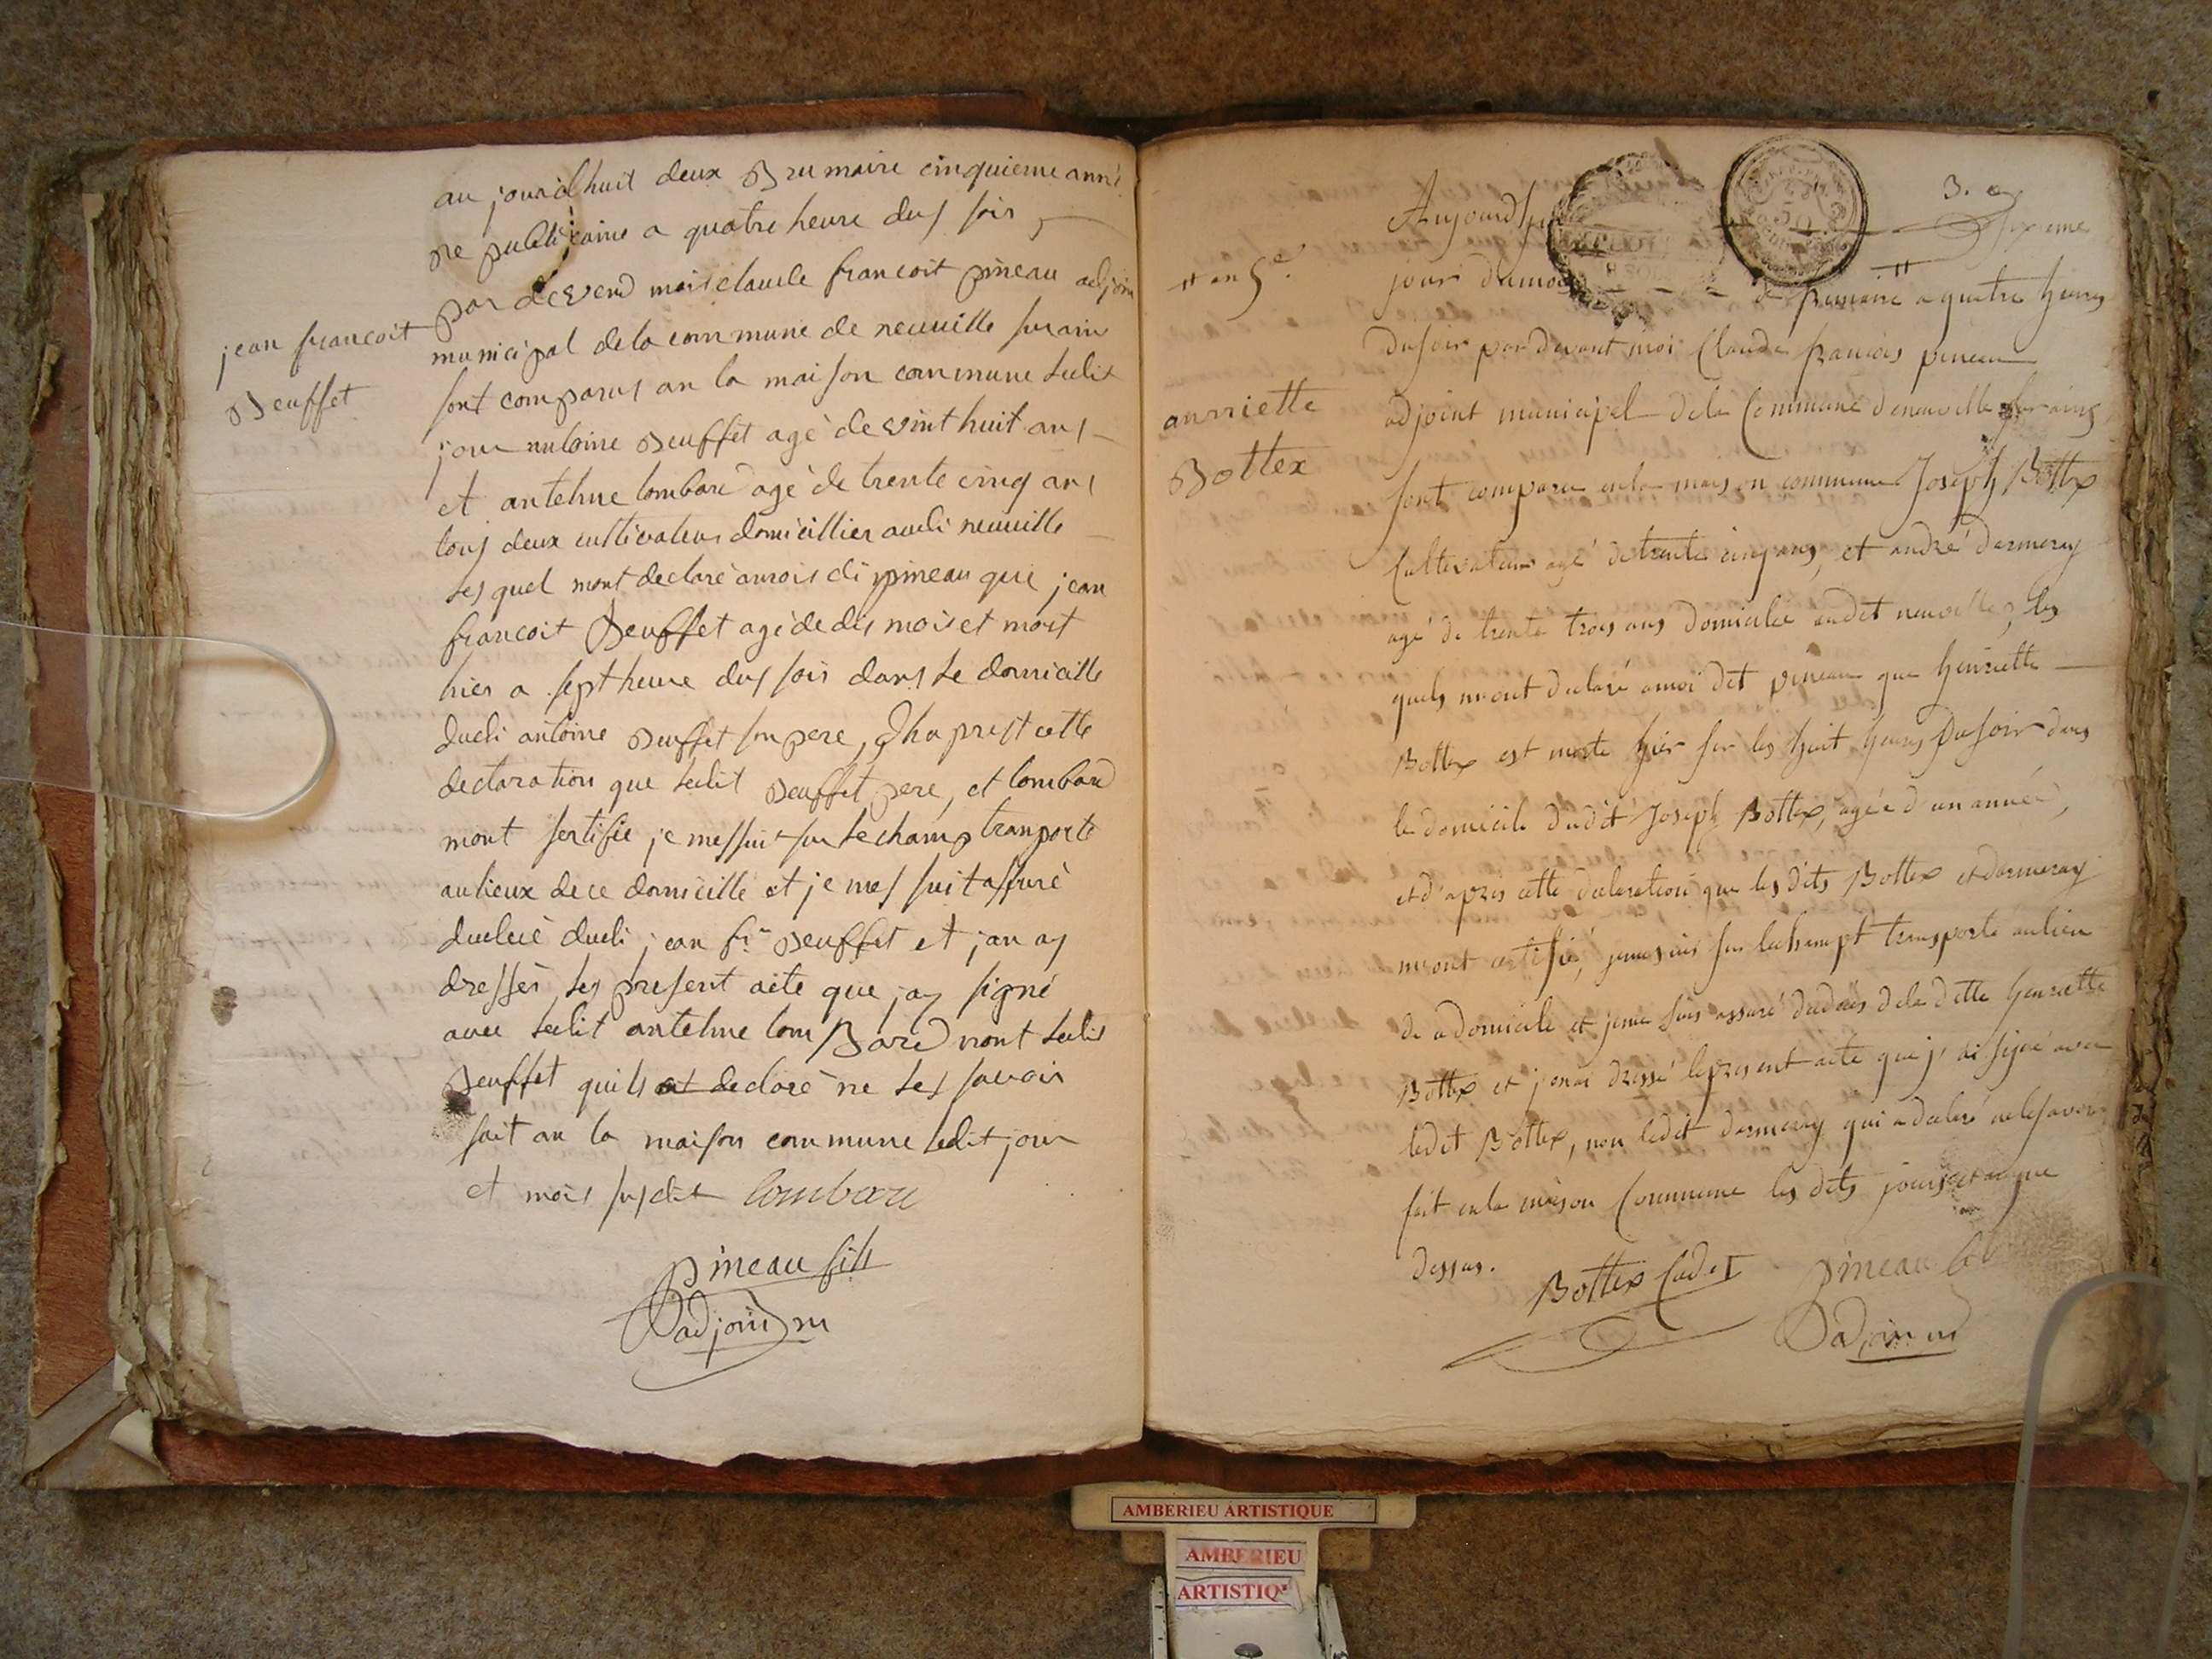 au jourdhuit deux Brumaire cinquieme anné
re publi caine a quatre heure dus soir
par devend moi claude francoit pineau adjoin
municipal de la commune de neuuille sur ain
jean francoit
Beuffet
sont comparus an la maison commune ledit
jour antoine Beuffet agé de vint huit ans
et antelme lombard agé de trente cinq ans
tous deux cultivateur domicillier audi neuuille
les quel mont declaré amois di pineau que jean
francoit Beuffet agé de dis mois et mort
hier a sept heure dus soir dans le domicille
dudi antoine Beuffet son pere, d'haprest cette
declaration que ledit Beuffet pere, et lombard
mont sertifié je mes suit sur le champ tranporte
aulieux de ce domicille et je mes suit assuré
duducé dudi jean fr. Beuffet et jan ay
dressér les present acte que jay signé
avec ledit antelme lom Bard nont ledit
Beuffet quils at declaré ne les savoir
fait an la maison commune ledit jour
et mois susdit lombard
pineau fils
adjoint m
3. e
Aujourdhui sixeme
# an 5e.
jour du mois de frimaire # a quatre heures
du soir par devant moi Claude francois pineau
anriette
Bottex
adjoint municipal de la Commune de neuville sur ains
sont comparu en la maison commune Joseph Bottex
Cultivateur agé de trente cinq ans, et andré darmeray
agé de trente trois ans domicilié audit neuville, les
quels mont declaré amoi dit pineau que henriette
Bottex est morte hier sur les huit heures Du soir dans
le domicile dudit Joseph Bottex, agée d'un année,
et d'apres cette declaration que les dits Bottex et darmeray
mont certifié, jemesuis sur lechampt transporté au lieu
de ce domicile et jeme suis assuré du deces de la ditte henriette
Bottex et j'en ai dressé le present acte que j'ai signé avec
ledit Bottex, non ledit darmeray qui a declaré ne le savoir
fait en la maison Commune les dits jours et an que
dessus.
Bottex Cadet
pineau fils
adjoin m
AMBERIEU ARTISTIQUE
AMBERIEU
ARTISTIQ